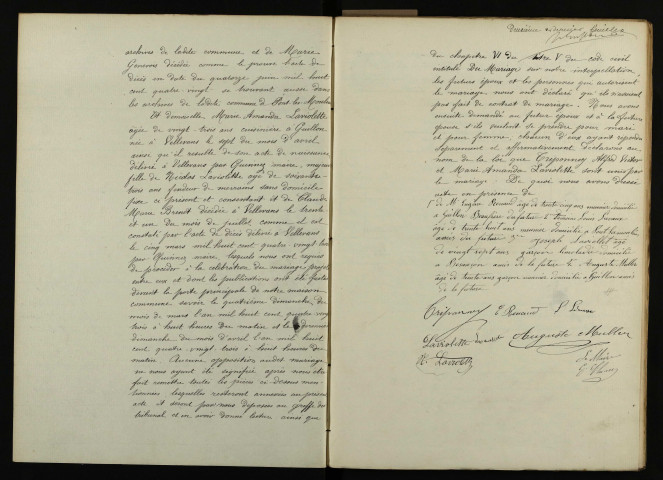 archives de ladite commune et de Marie
Genevois décédée comme le prouve l'acte de
décès en date du quatorze juin mil huit
cent quatre vingt se trouvant aussi dans
les archives de ladite commune
Et demoiselle Marie Amanda Laviolette
âgée de vingt trois ans cuisinière à Quellore
née à Villevans le sept du mois d'avril
ainsi qu'il résulte de son acte de naissance
délivré à Villevans par Quenney maire, majeure
fille de Nicolas Laviolette âgé de soixante-
trois ans fendeur de merrains sans domicile
fixe ci présent et consentant et de Claude
Marie Brenet décédée à Villevans le trente
et un du mois de juillet comme il est
constaté par l'acte de décès délivré à Villevans
le cinq mars mil huit cent quatre-vingt trois
par Quenney maire, lesquels nous ont requis
de procéder à la célébration du mariage projeté
entre eux et dont les publications ont été faites
devant la porte principale de notre maison
commune savoir le quatrième dimanche du
mois de mars l'an mil huit cent quatre vingt
trois à huit heures du matin et le premier
dimanche du mois d'avril l'an mil huit
cent quatre vingt trois à huit heures du
matin. Aucune opposition audit mariage
ne nous ayant été signifiée après nous être
fait remettre toutes les pièces ci dessus men-
tionnées lesquelles resteront annexées au présent
acte et seront par nous déposées au greffe du
tribunal et en avoir donné lecture ainsi que
Deuxième et dernier feuillet
du chapitre VI du titre V du code civil
intitulé Du Mariage sur notre interpellation,
les futurs époux et les personnes qui autorisent
le mariage nous ont déclaré qu'ils n'avaient
pas fait de contrat de mariage. Nous avons
ensuite demandé au futur époux et à la future
épouse s'ils veulent se prendre pour mari
et pour femme, chacun d'eux ayant répondu
séparément et affirmativement Déclarons au
nom de la loi que Tréjaunay Alfred Victor
et Marie Amanda Laviolette sont unis par
le mariage. De quoi nous avons dressé
acte en présence de
1° de Mr Eugène Renaud âgé de trente cinq ans
âgé de trente huit ans
amis du futur 3° Joseph Laviolet âgé
de vingt sept ans garçon limonadier domicilié
à Besançon ami de la future 4° Auguste Muller
âgé de trente ans garçon meunier domicilié à Quellore ami
de la future
Tréjaunay E Renaud
Laviolette Auguste Muller
N. Laviolette Le Maire